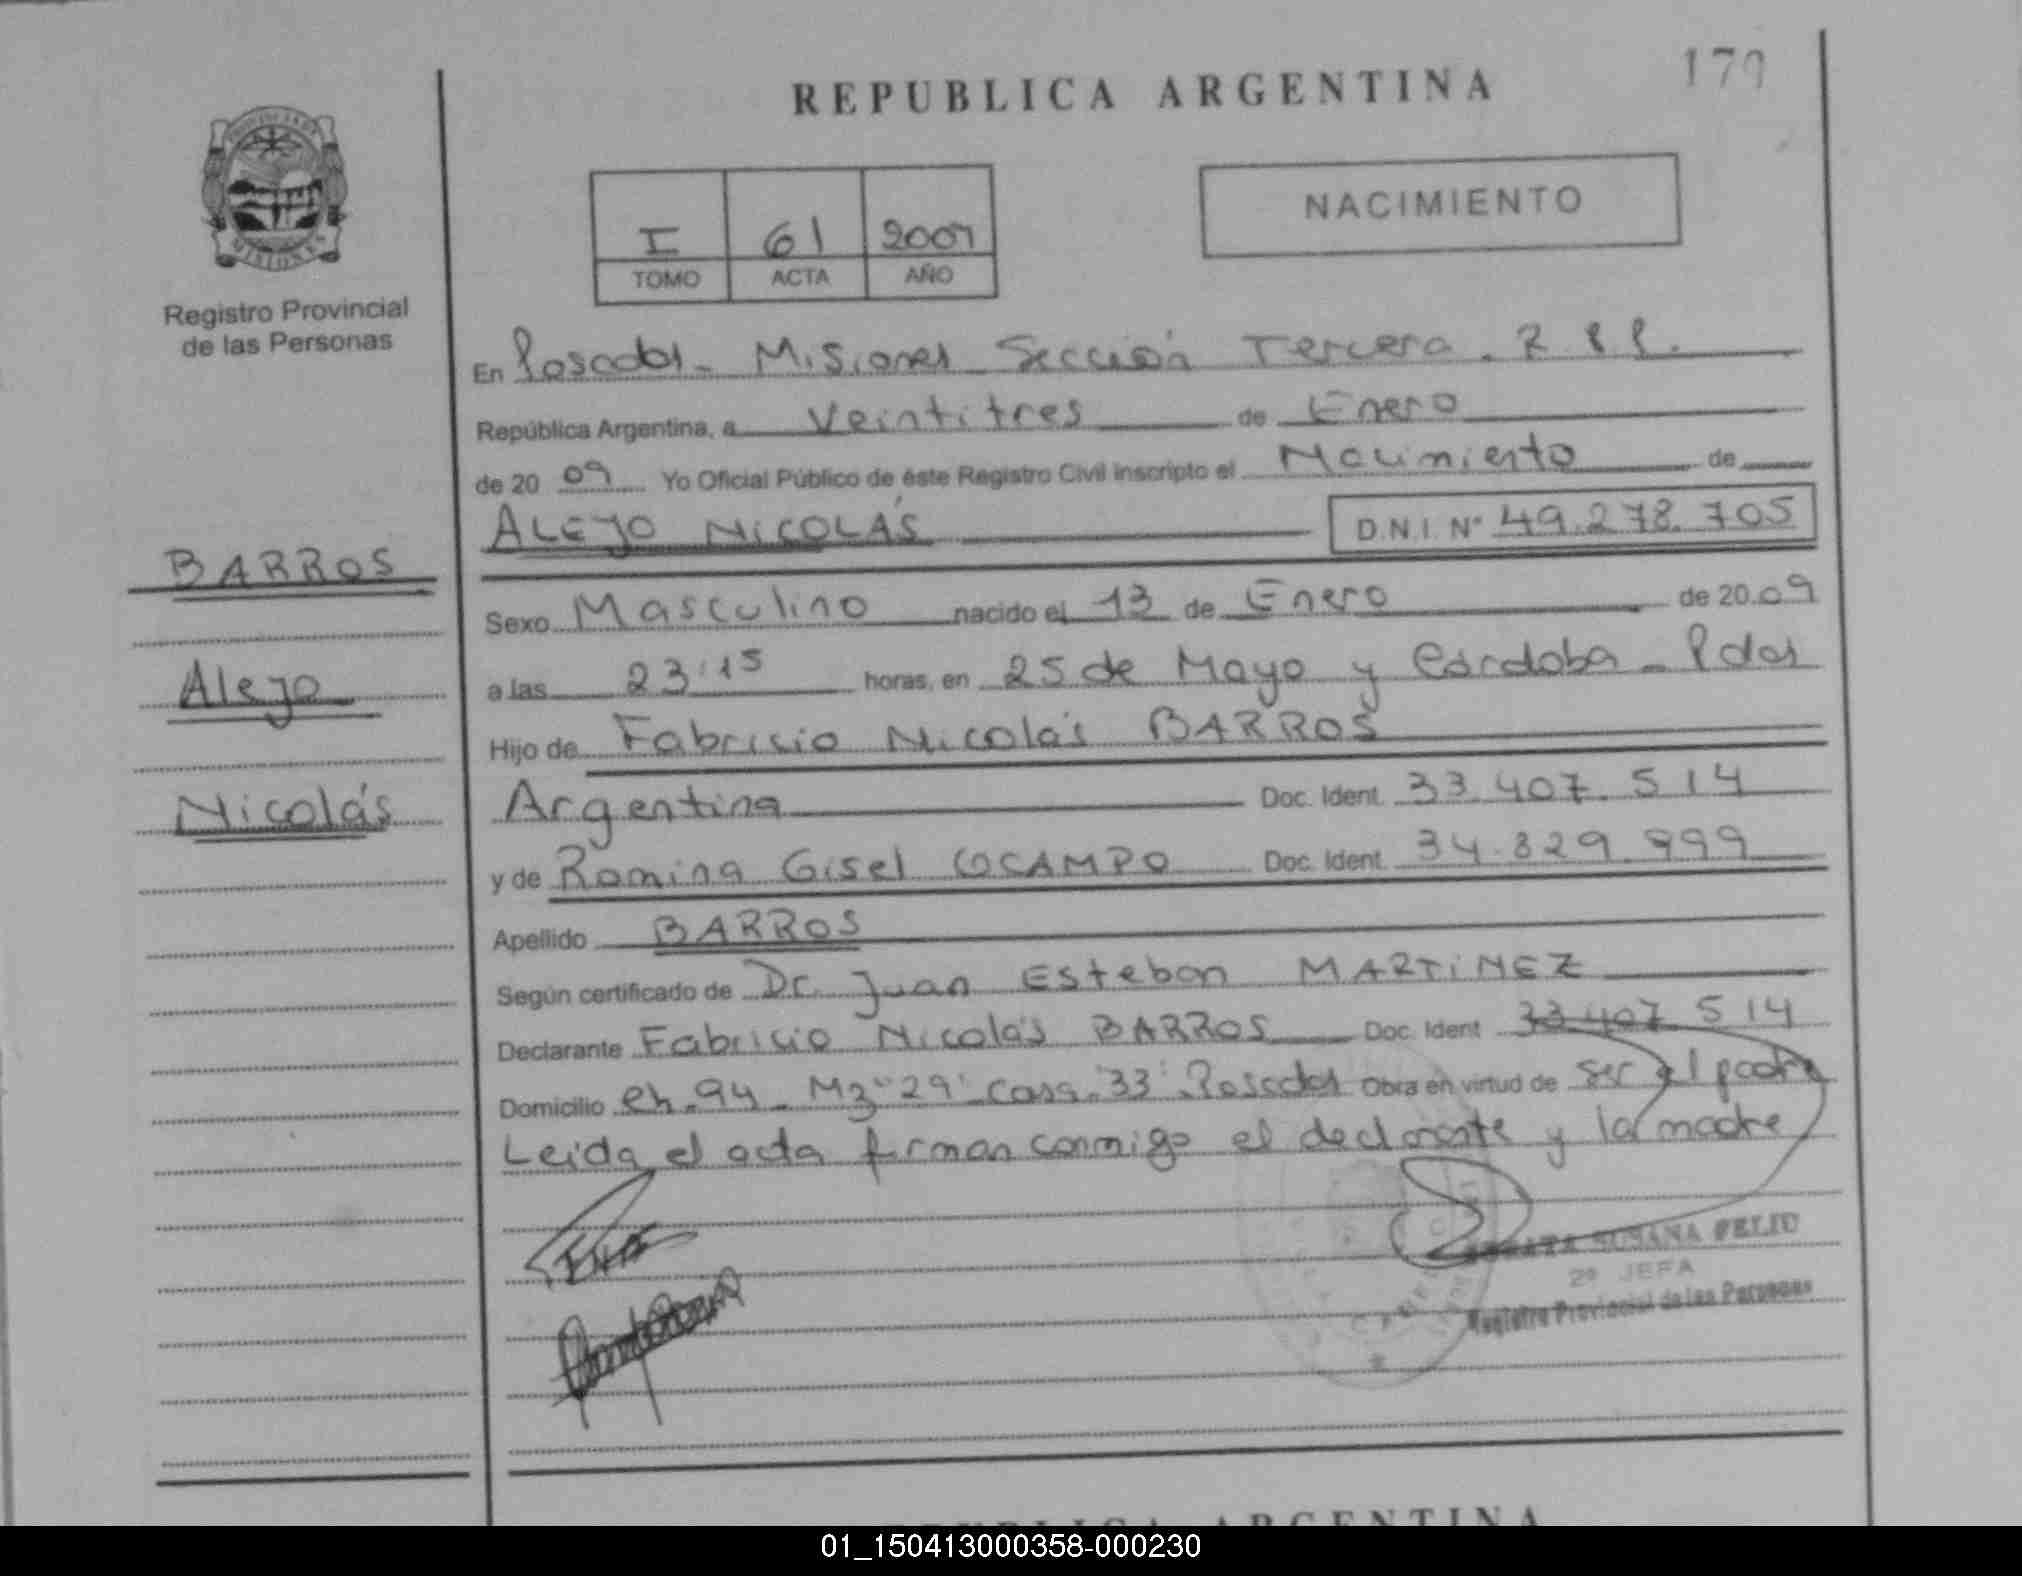 REPUBLICA ARGENTINA
179
PROVINCIA DE
MISIONES
Registro Provincial
de las Personas
I 61 2009
TOMO ACTA AÑO
NACIMIENTO
En Posadas - Misiones Sección Tercera - R.P.P.
República Argentina, a Veintitres de Enero
de 20 09 Yo Oficial Público de éste Registro Civil inscripto el Nacimiento de
ALEJO NICOLÁS D.N.I. Nº 49.278.705
BARROS
Alejo
Nicolás
Sexo Masculino nacido el 13 de Enero de 20 09
a las 23:15 horas, en 25 de Mayo y Córdoba - Pdas
Hijo de Fabricio Nicolás BARROS
Argentina Doc. Ident. 33.407.514
y de Romina Gisel OCAMPO Doc. Ident. 34.829.999
Apellido BARROS
Según certificado de Dr. Juan Esteban MARTINEZ
Declarante Fabricio Nicolás BARROS Doc. Ident 33.407.514
Domicilio Ch. 94 - Mz "29" - Casa "33" Posadas Obra en virtud de ser el padre
Leida el acta firman conmigo el declarante y la madre
SUSANA FELIU
2º JEFA
Registro Provincial de las Personas
REPUBLICA ARGENTINA
01_150413000358-000230